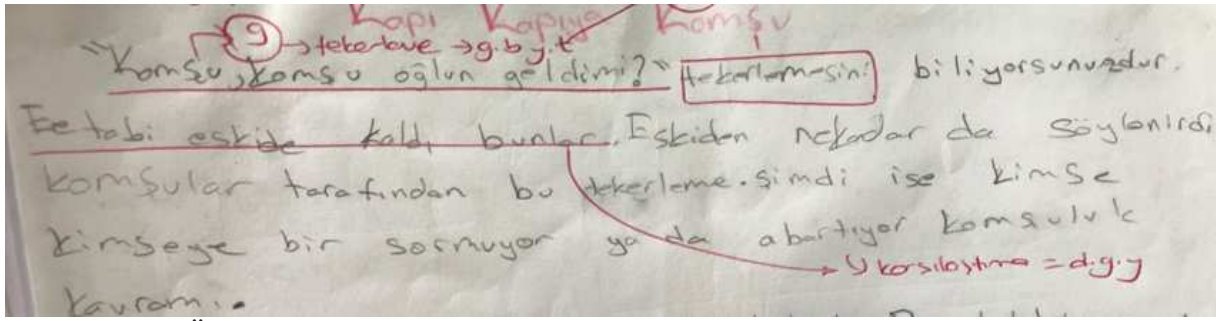 Kapı Kapıya Komşu
9 → tekerleme → g.b.y.t
"Komşu, komşu oğlun geldimi?" tekerlemesini biliyorsunuzdur.
Ee tabi eskide kaldı bunlar. Eskiden nekadar da söylenirdi
komşular tarafından bu tekerleme. Şimdi ise kimse
kimseye bir sormuyor ya da abartıyor komşuluk
karşılaştırma = d.g.y
kavramı.